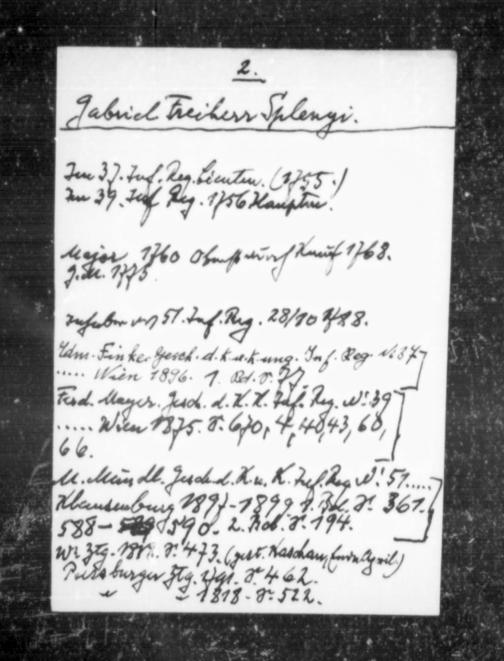 2.
Gabriel Freiherr Splenyi.
Im 37. Inf. Reg. Lieuten. (1755.)
Im 39. Inf. Reg. 1756 Hauptm.
Major 1760 Oberst durch Kauf 1768.
G.M. 1775
Inhaber v. 51. Inf. Reg. 28/10 1788.
Edm. Finke Gesch. d. k. u. k. ung. Inf. Reg. Nr. 37
..... Wien 1896. 1. Bd. S.
Ferd. Mayer. Gesch. d. K. K. Inf. Reg. Nr. 39
..... Wien 1875. S. 670, 4, 40, 43, 60,
66.
M. Maendl. Gesch. d. K. u. K. Inf. Reg. Nr. 51.....
Klausenburg 1897-1899 1. Bd. S. 361.
588- 590. 2. Bd. S. 194.
Wr. Ztg. S. 473. (gest. Kaschau, April.)
Pressburger Ztg. S. 462.
" " 1818. S. 522.